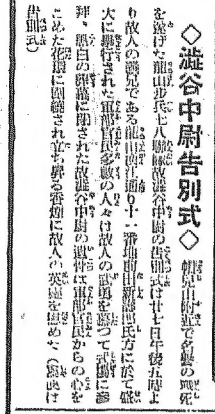 ◇澁谷中尉告別式◇
帽兒山附近で名譽の戰死
を遂げた龍山步兵七八聯隊故澁谷中尉の告別式は十七日午後五時よ
り故人の親兒である龍山漢江通り十一番地前田新 氏方に於て盛
大に擧行された軍部官民多數の人々は故人の武勇を慕つて式場に參
拜、黑白の弔幕に閉された故澁谷中尉の遺骨は軍部官民からの心を
こめた花環に圍繞され立ち昇る香煙に故人の英靈を慰めた（寫眞は
告別式）